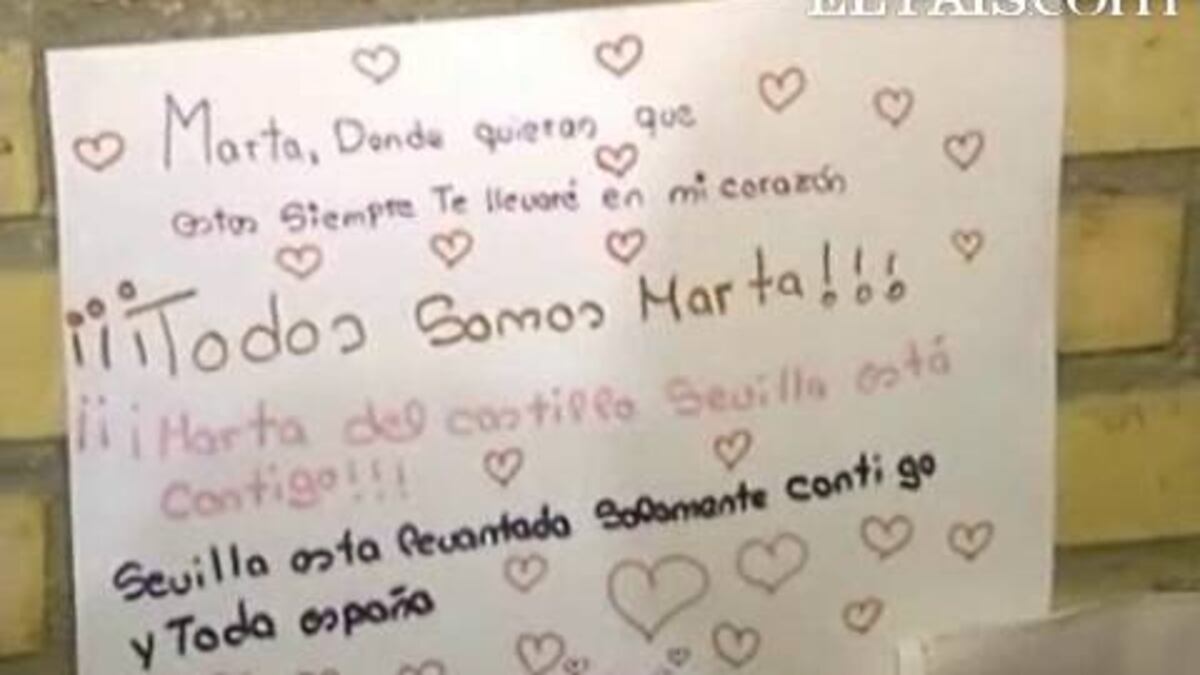 ELPAIS.com
Marta, Donde quieran que
estas Siempre Te llevaré en mi corazón
¡¡¡Todos Somos Marta!!!
¡¡¡Marta del castillo Sevilla está
contigo!!!
Sevilla esta levantada Solamente contigo
y Toda españa